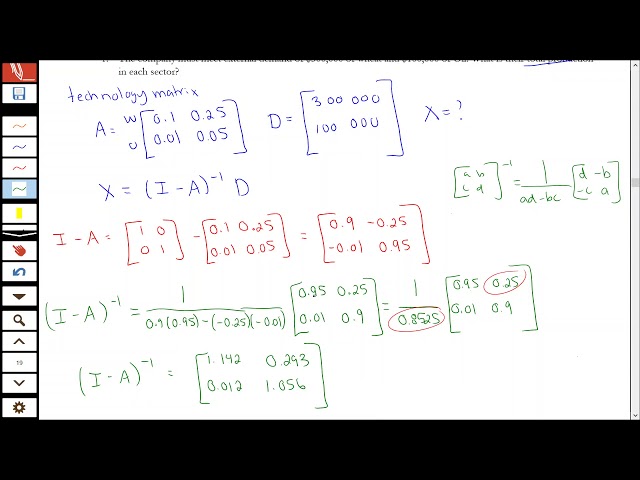 in each sector?
technology matrix
A = W O [0.1 0.25 0.01 0.05] D = [300 000 100 000] X = ?
X = (I - A)⁻¹ D
[a b c d]⁻¹ = 1/(ad-bc) [d -b -c a]
I - A = [1 0 0 1] - [0.1 0.25 0.01 0.05] = [0.9 -0.25 -0.01 0.95]
(I - A)⁻¹ = 1/(0.9(0.95)-(-0.25)(-0.01)) [0.95 0.25 0.01 0.9] = 1/0.8525 [0.95 0.25 0.01 0.9]
(I - A)⁻¹ = [1.142 0.293 0.012 1.056]
19